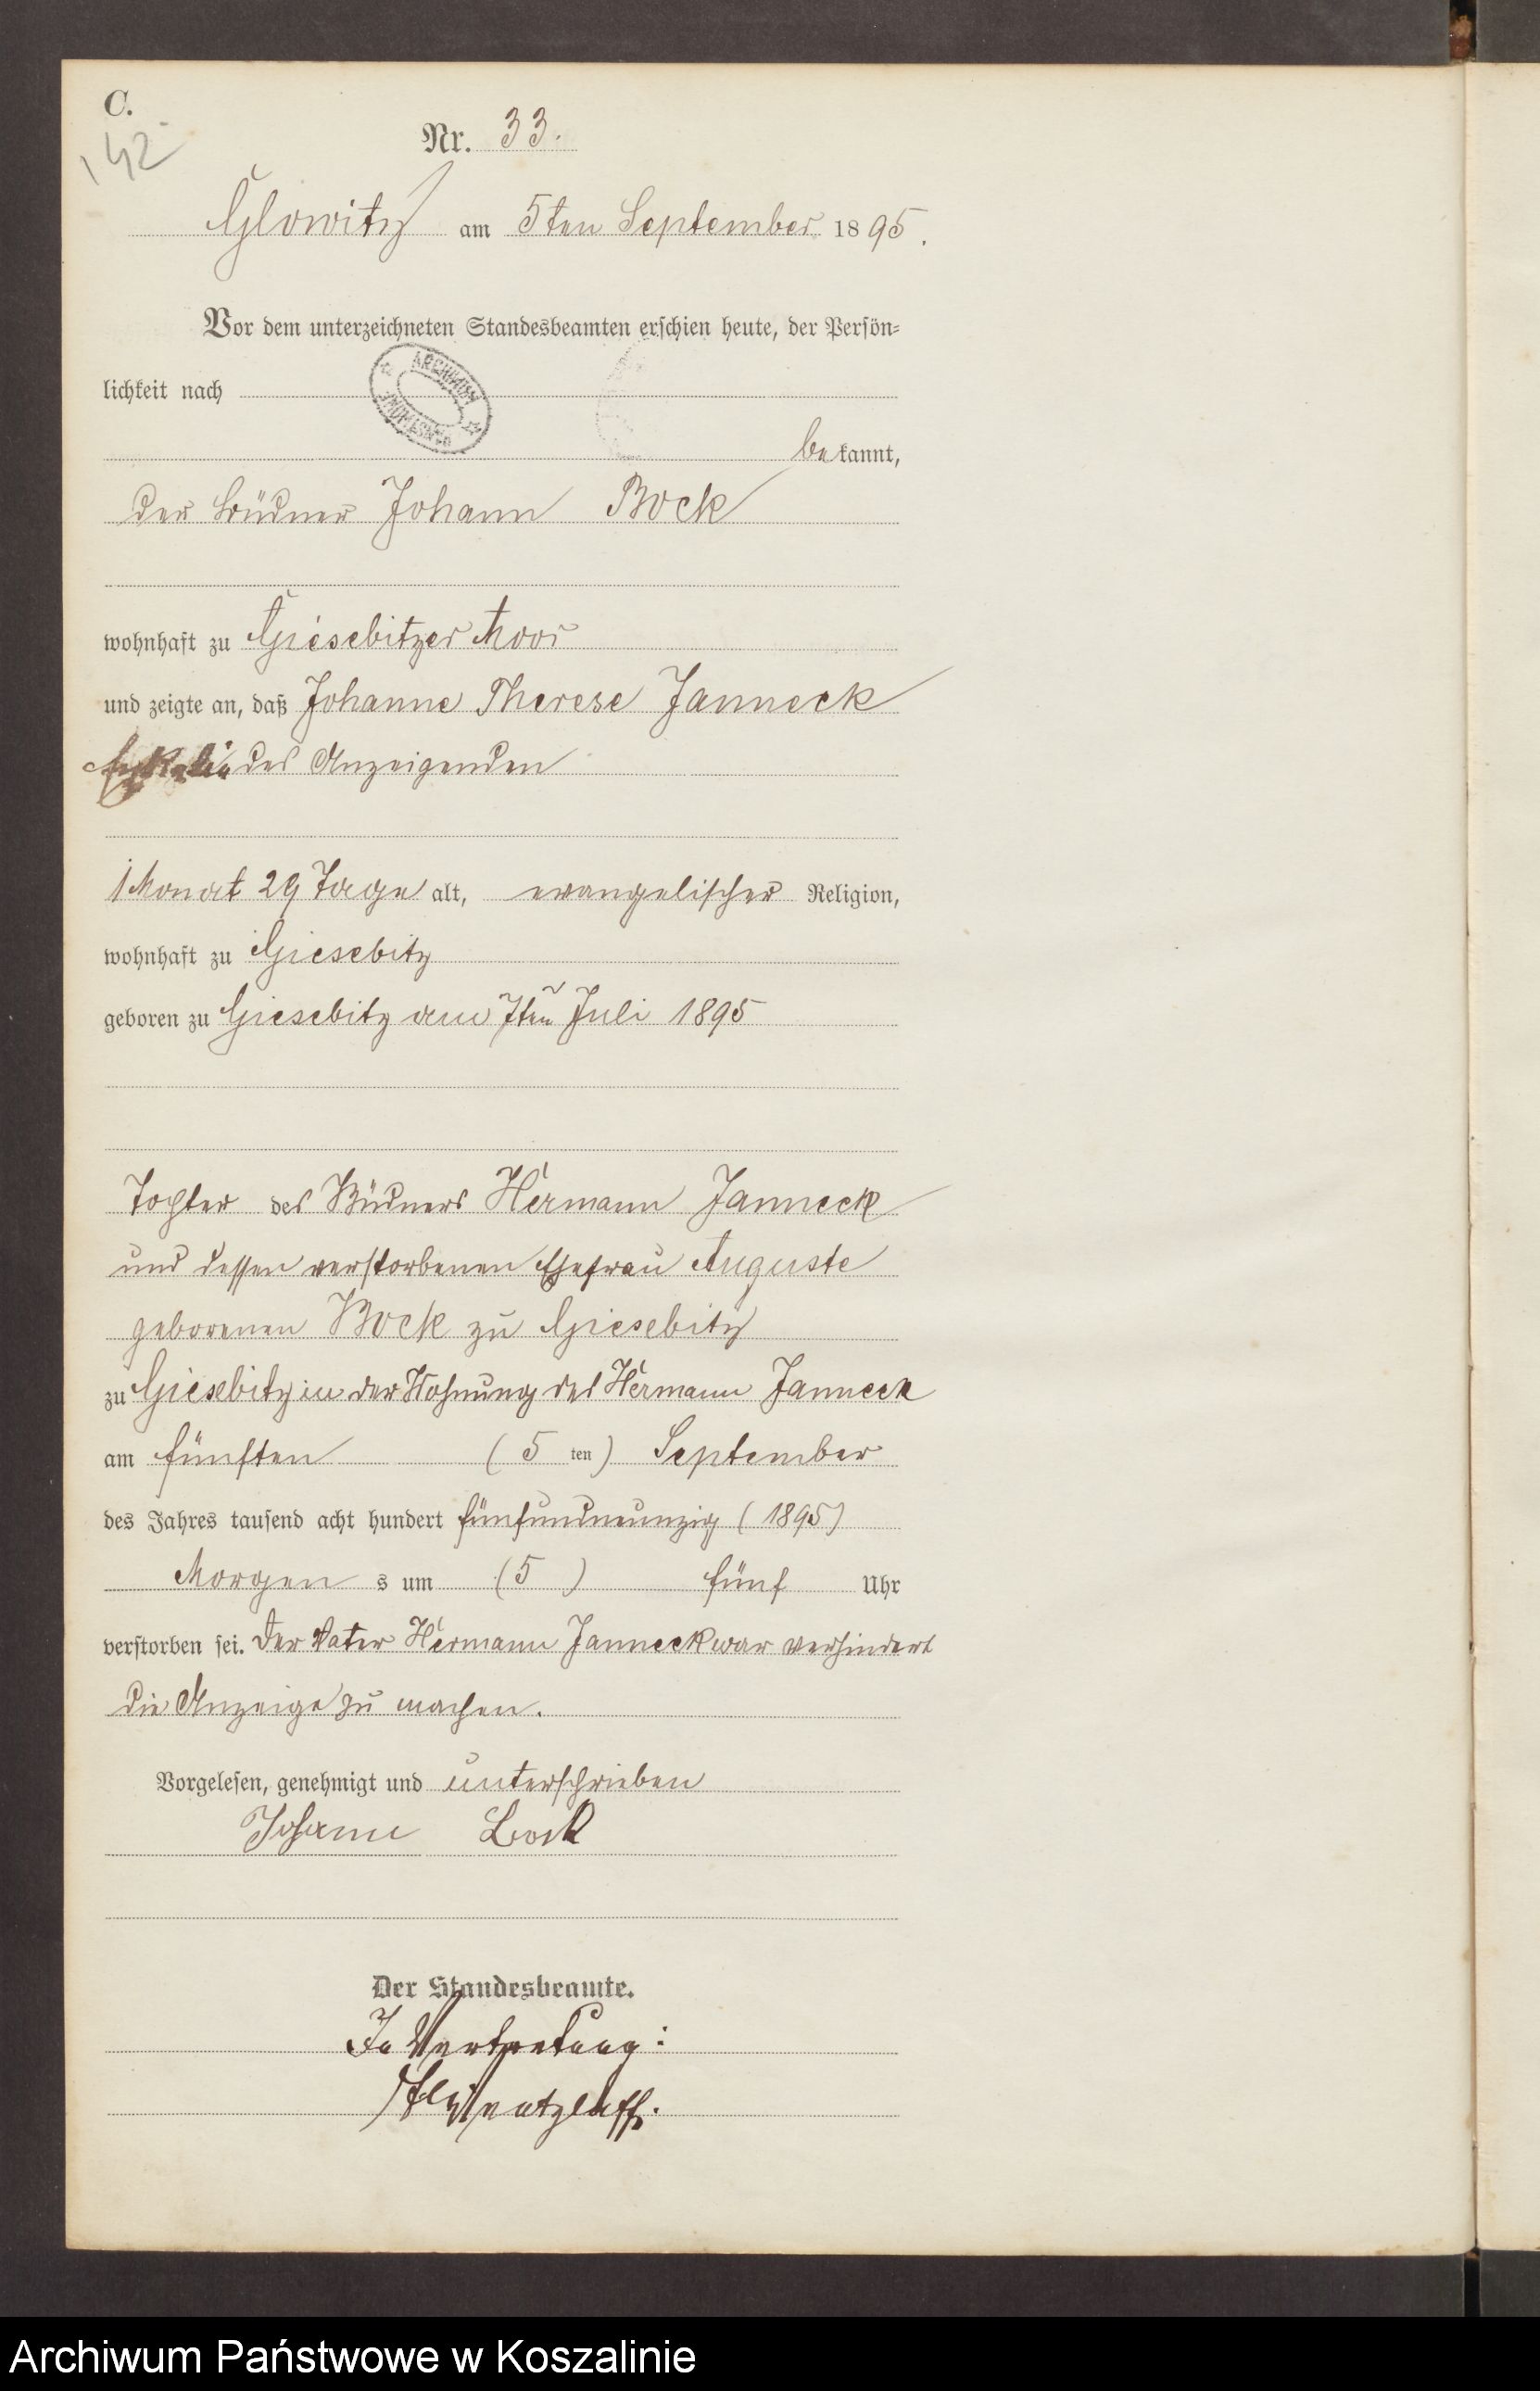 C.
142
Nr. 33.
Glowitz am 5ten September 1895.
Vor dem unterzeichneten Standesbeamten erschien heute, der Persön-
lichkeit nach
ARCHIWUM
bekannt,
der Büdner Johann Bock
wohnhaft zu Giesebitzer Moor
und zeigte an, daß Johanne Therese Janneck
des Anzeigenden
1 Monat 29 Tage alt, evangelischer Religion,
wohnhaft zu Giesebitz
geboren zu Giesebitz am 7ten Juli 1895
Tochter des Büdners Hermann Janneck
und dessen verstorbenen Ehefrau Auguste
geborenen Bock zu Giesebitz
zu Giesebitz in der Wohnung des Hermann Janneck
am fünften (5ten) September
des Jahres tausend acht hundert fünfundneunzig (1895)
Morgens um (5) fünf Uhr
verstorben sei. Der Vater Hermann Janneck war verhindert
die Anzeige zu machen.
Vorgelesen, genehmigt und unterschrieben
Johann Bock
Der Standesbeamte.
In Vertretung:
Archiwum Państwowe w Koszalinie